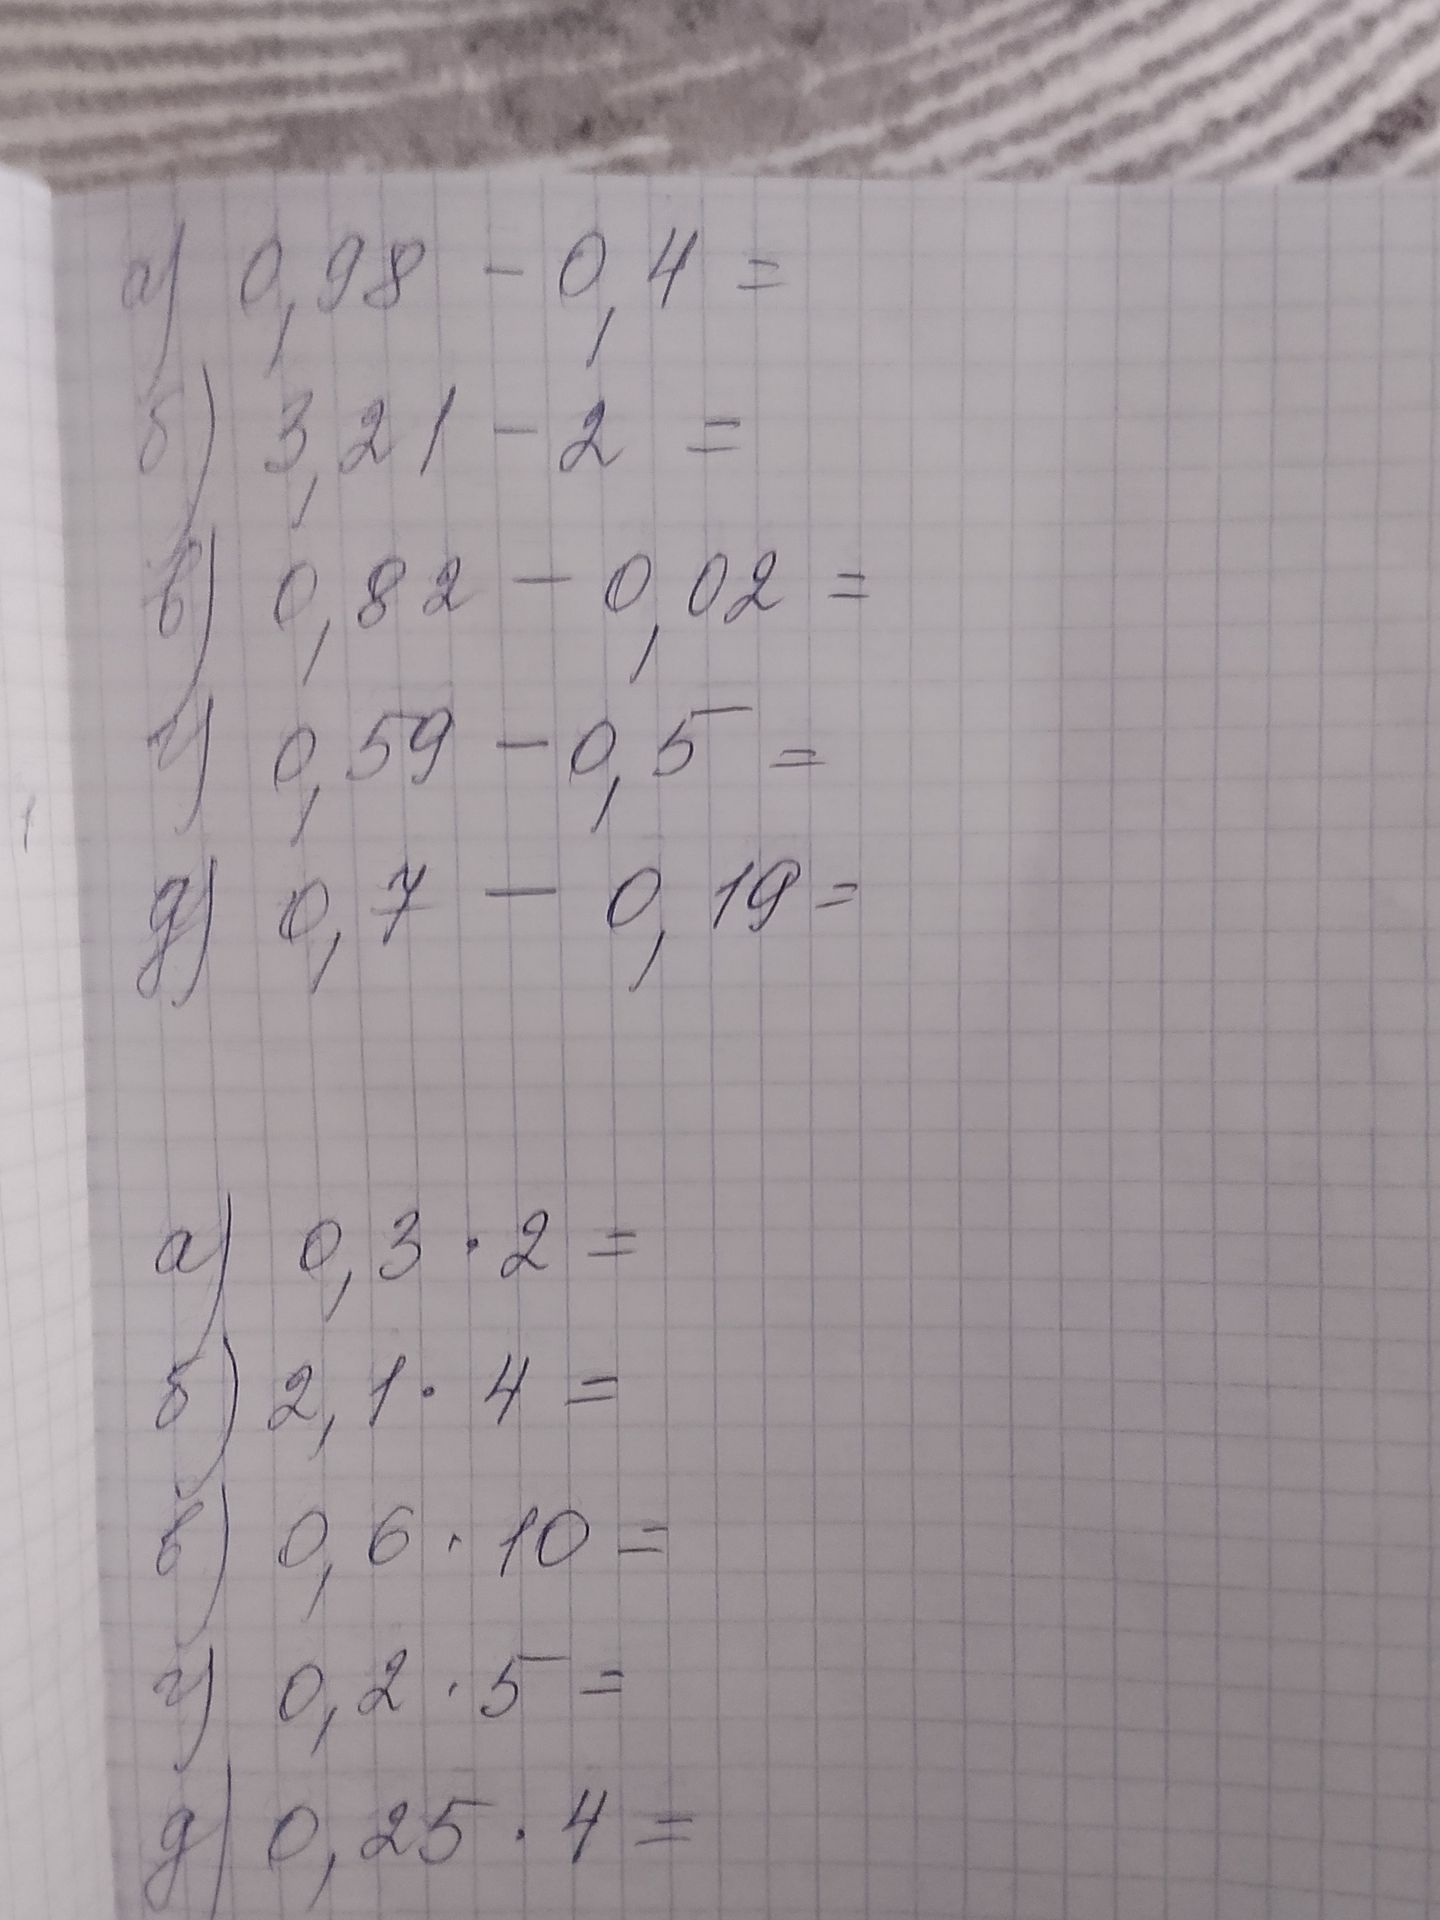 а) 0,98 - 0,4 =
б) 3,21 - 2 =
в) 0,82 - 0,02 =
г) 0,59 - 0,5 =
д) 0,7 - 0,19 =
а) 0,3 · 2 =
б) 2,1 · 4 =
в) 0,6 · 10 =
г) 0,2 · 5 =
д) 0,25 · 4 =